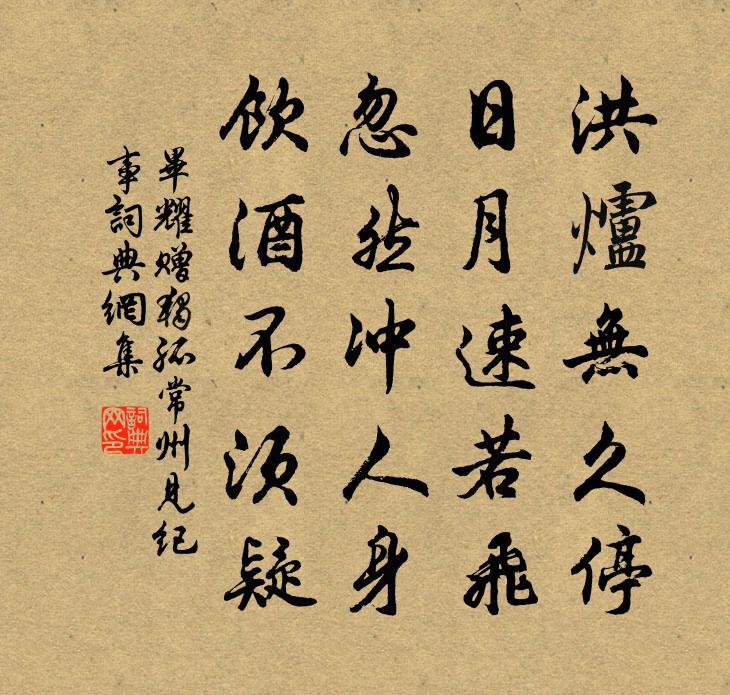 洪爐無久停
日月速若飛
忽然冲人身
飲酒不須疑
畢耀赠獨孤常州見纪
事詞典網集
詞典网印